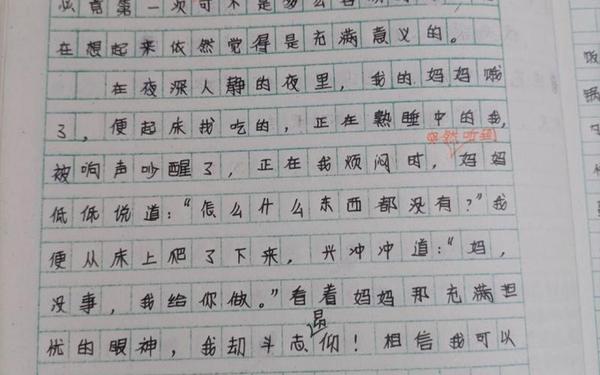 竟第一次可不是多么容易
在想起来依然觉得是充满意义的。
在夜深人静的夜里，我的妈妈饿
了，便起床找吃的，正在熟睡中的我，
突然听到
被响声吵醒了，正在我烦闷时，妈妈
低低说道：“怎么什么东西都没有？”我
便从床上爬了下来，兴冲冲道：“妈，
没事，我给你做。”看着妈妈那充满担
昂
忧的眼神，我却斗志仰！相信我可以
饭